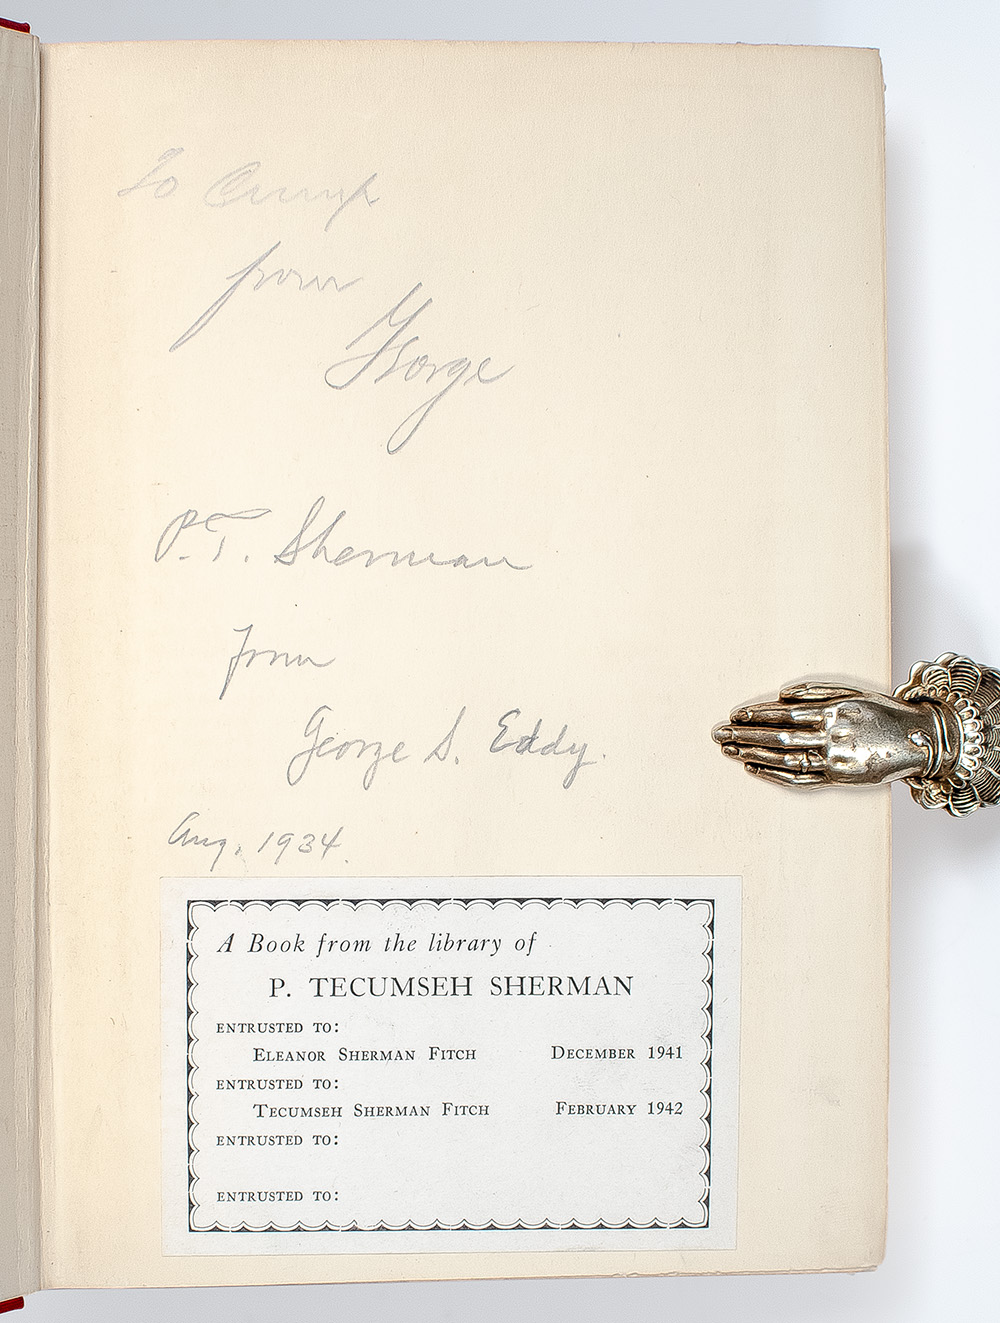 To
from
George
P.T. Sherman
from
George S. Eddy.
Aug. 1934.
A Book from the library of
P. TECUMSEH SHERMAN
ENTRUSTED TO:
ELEANOR SHERMAN FITCH DECEMBER 1941
ENTRUSTED TO:
TECUMSEH SHERMAN FITCH FEBRUARY 1942
ENTRUSTED TO:
ENTRUSTED TO: